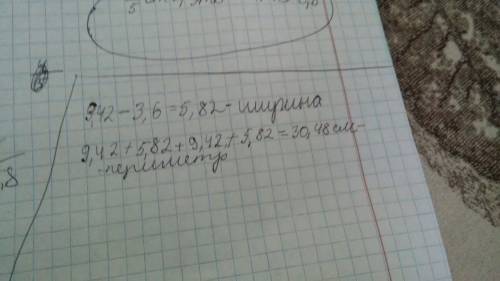 9,42 - 3,6 = 5,82 - ширина
9,42 + 5,82 + 9,42 + 5,82 = 30,48 см -
периметр
,8